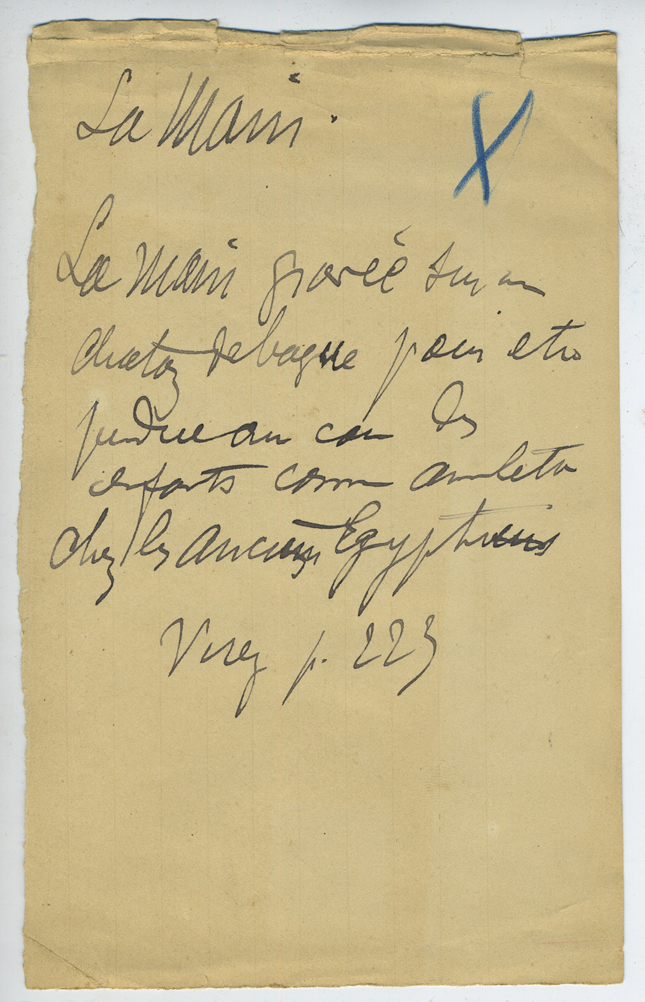 La Main.
X
La Main gravée sur un
chaton de bague pour etre
pendue au cou des
enfants comme amulette
chez les anciens Egyptiens
p. 223